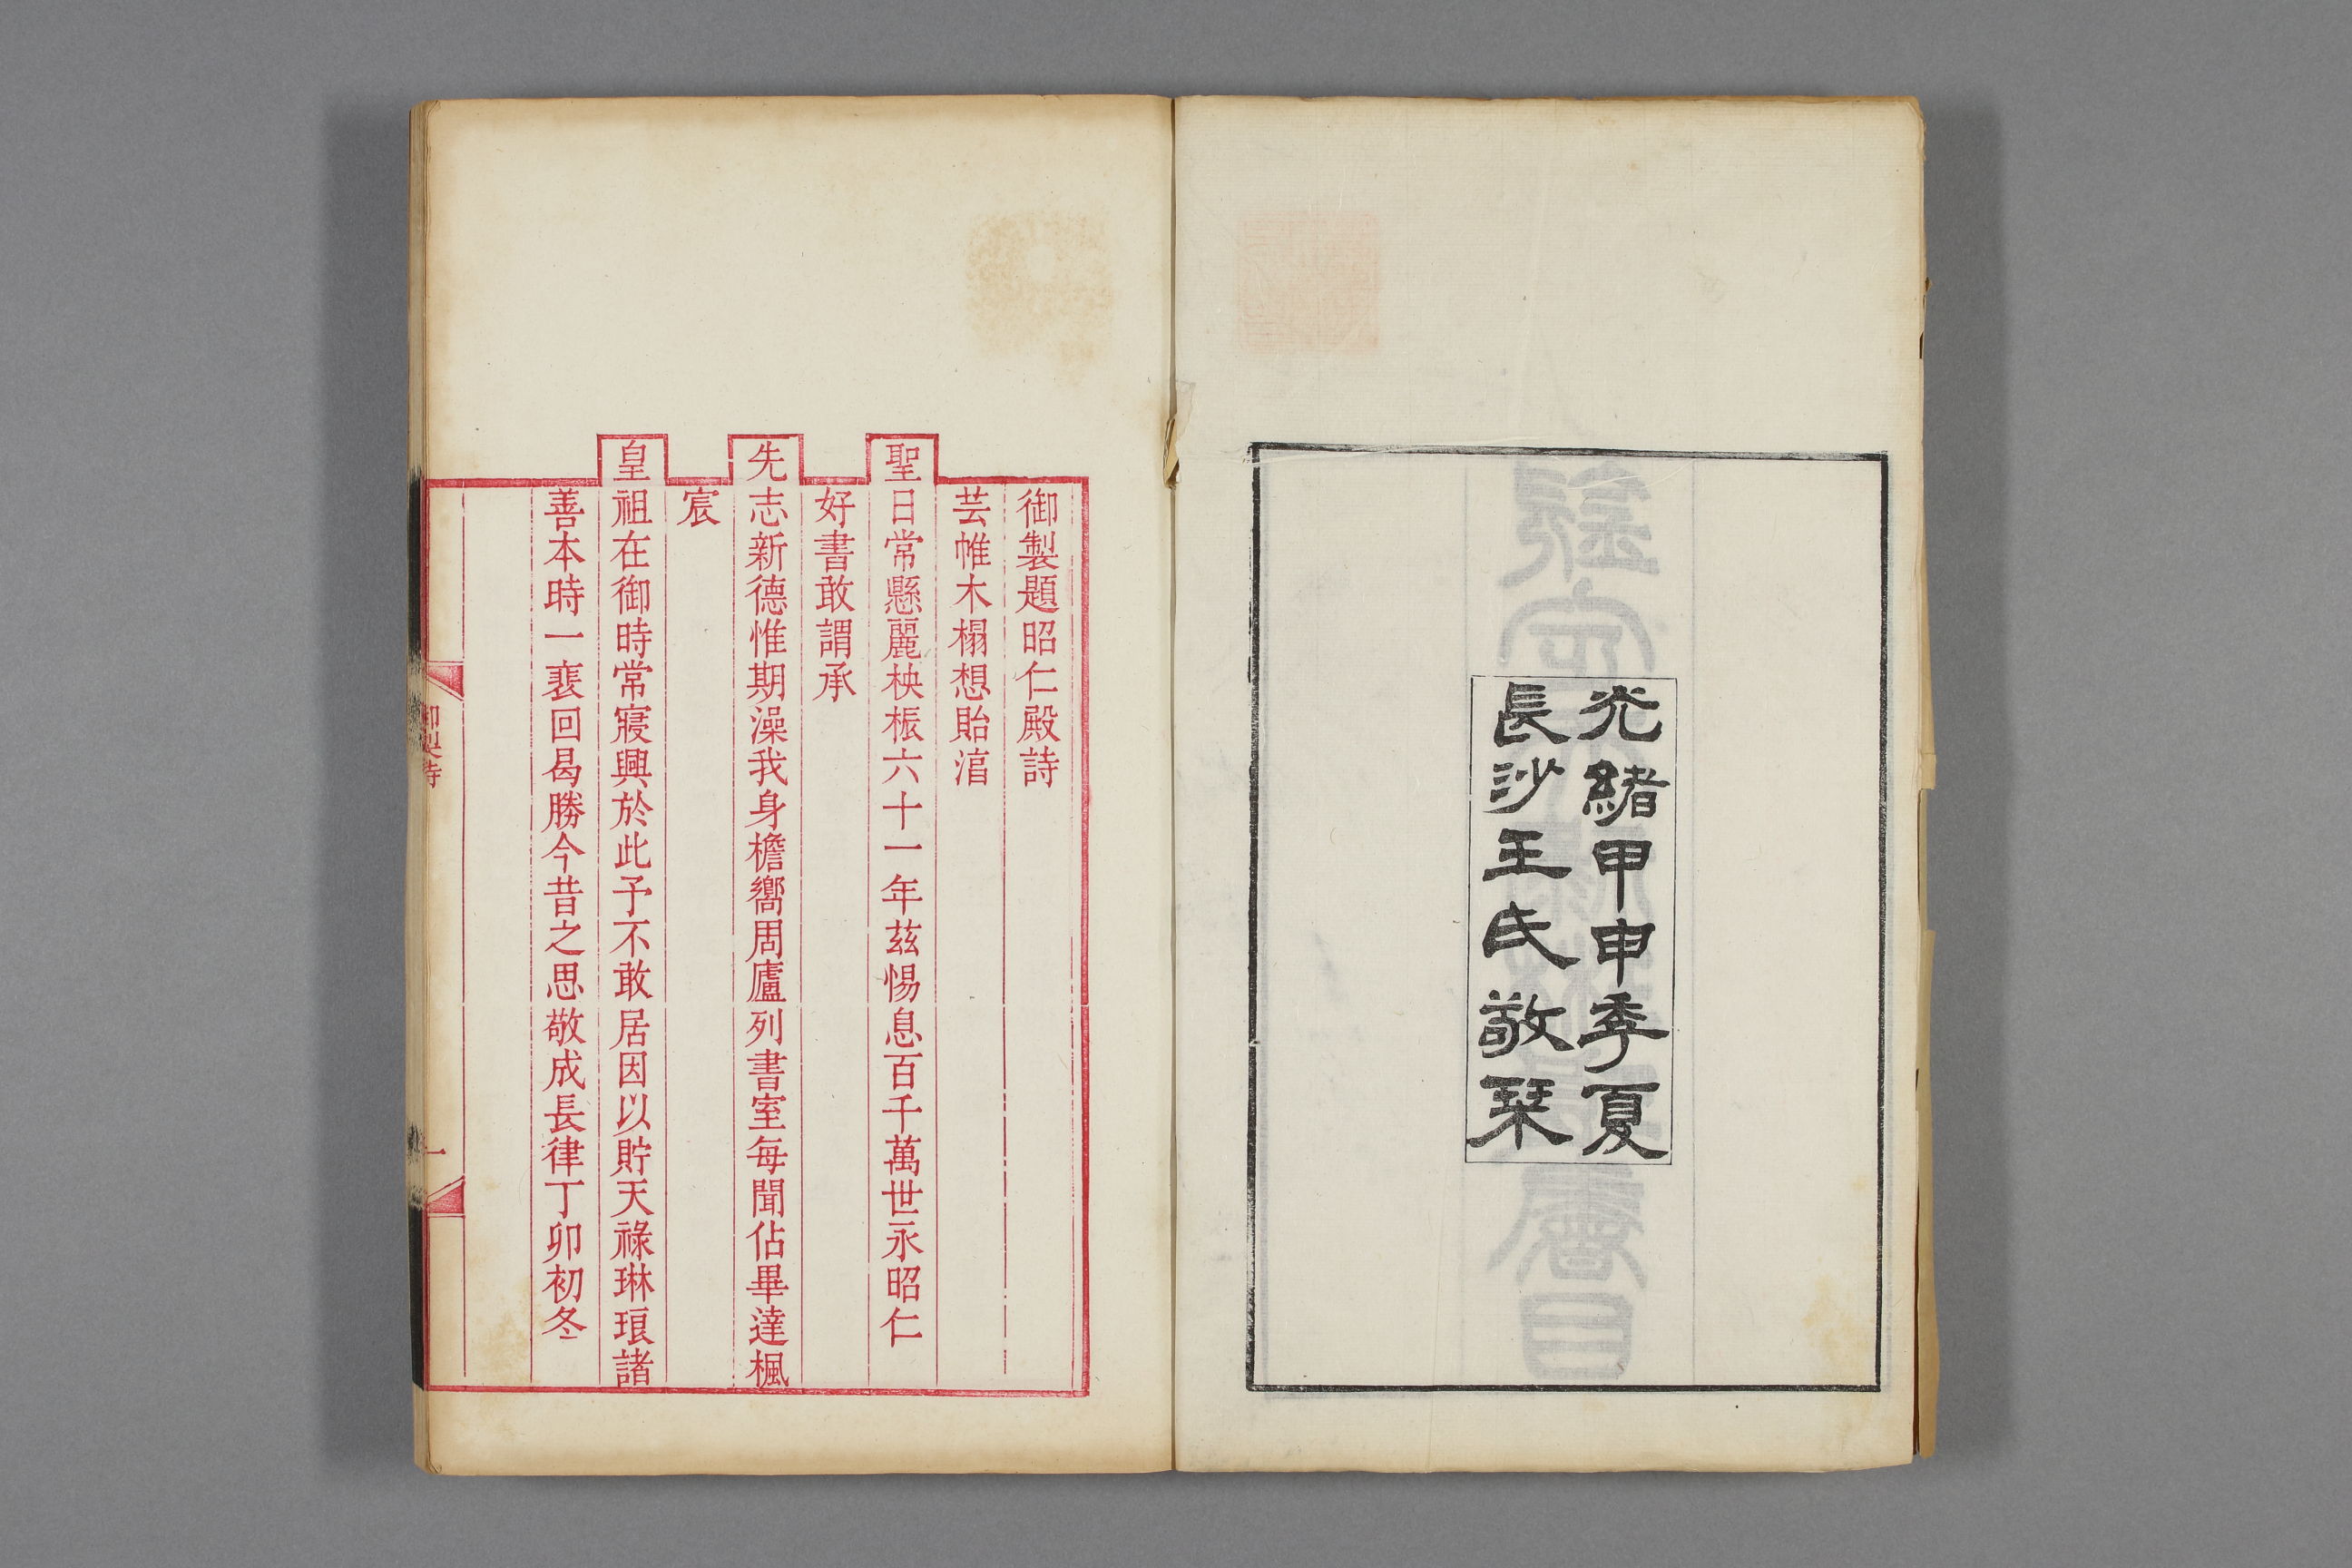 光緒甲申季夏
長沙王氏敬栞
御製題昭仁殿詩
芸帷木榻想貽㴶
聖日常懸麗柍桭六十一年茲惕息百千萬世永昭仁
好書敢謂承
先志新德惟期澡我身檐嚮周廬列書室每聞佔畢達楓
宸
皇祖在御時常寢興於此予不敢居因以貯天祿琳琅諸
善本時一裴回曷勝今昔之思敬成長律丁卯初冬